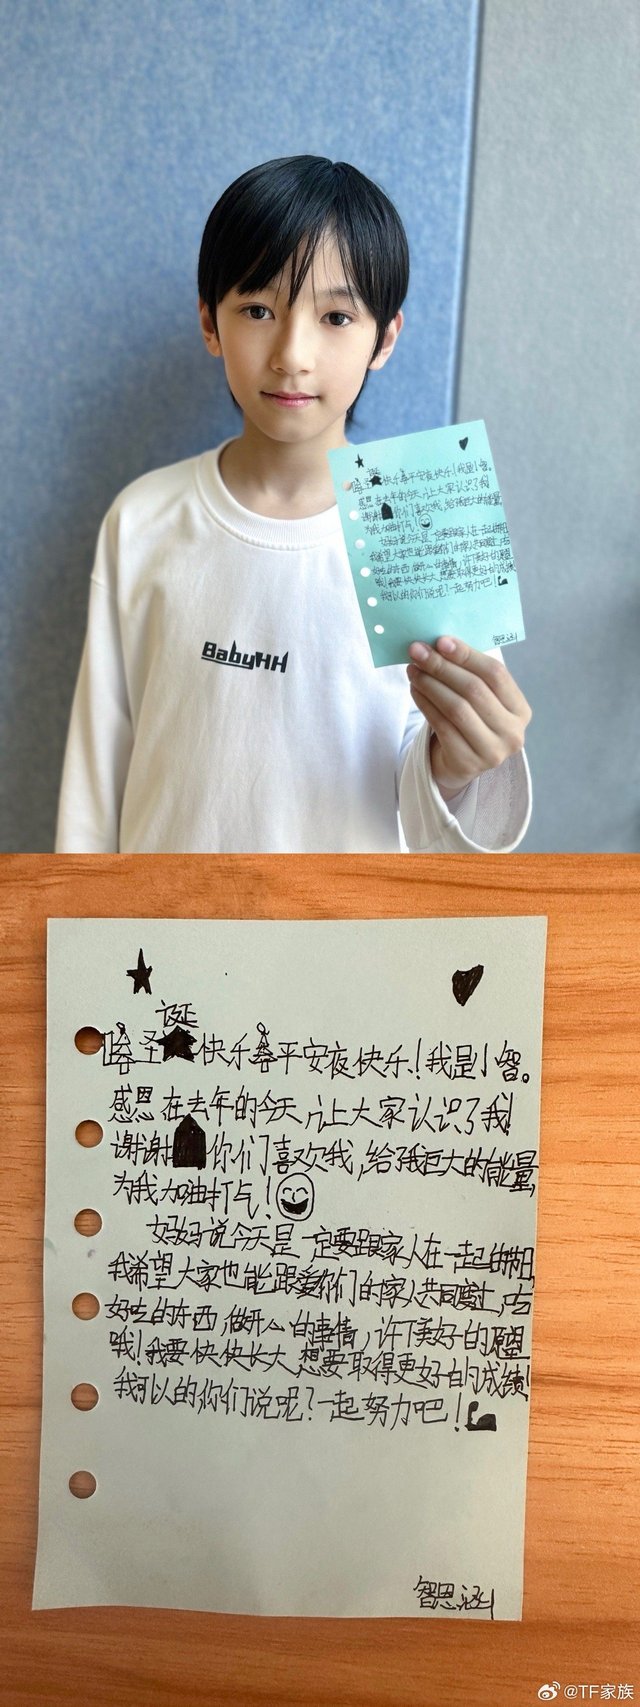 BabyHH
诞
哈圣快乐平安夜快乐!我是小智。
感恩在去年的今天,让大家认识了我!
谢谢你们喜欢我,给了我巨大的能量,
为我加油打气!
妈妈说今天是一定要跟家人在一起的节日,
我希望大家也能跟爱你们的家人共同度过,吃
好吃的东西,做开心的事情,许下美好的愿望
哦!我要快快长大,想要取得更好的成绩!
我可以的,你们说呢?一起努力吧!
智恩涵
@TF家族